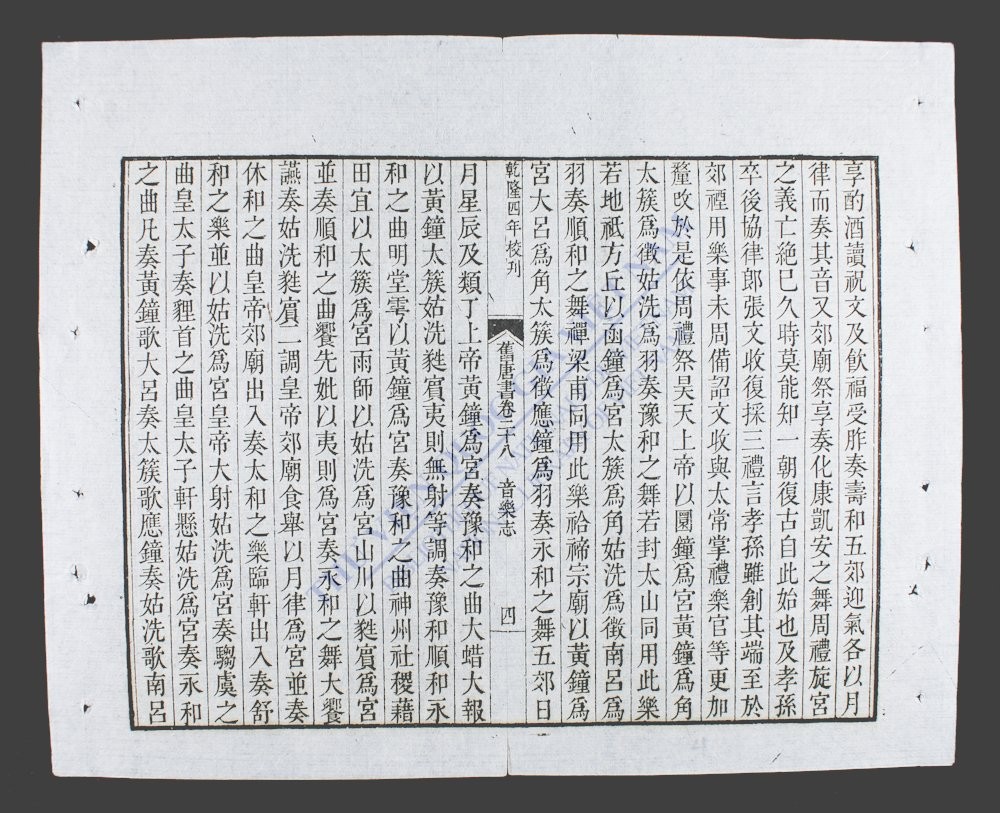 享酌酒讀祝文及飲福受胙奏壽和五郊迎氣各以月
律而奏其音又郊廟祭享奏化康凱安之舞周禮旋宮
之義亡絕已久時莫能知一朝復古自此始也及孝孫
卒後協律郎張文收復採三禮言孝孫雖創其端至於
郊禋用樂事未周備詔文收與太常掌禮樂官等更加
釐改於是依周禮祭昊天上帝以圜鐘爲宮黃鐘爲角
太簇爲徵姑洗爲羽奏豫和之舞若封太山同用此樂
若地祗方丘以函鐘爲宮太簇爲角姑洗爲徵南呂爲
羽奏順和之舞禪梁甫同用此樂祫禘宗廟以黃鐘爲
宮大呂爲角太簇爲徵應鐘爲羽奏永和之舞五郊日
乾隆四年校刋
舊唐書卷二十八 音樂志 四
月星辰及類丁上帝黃鐘爲宮奏豫和之曲大蜡大報
以黃鐘太簇姑洗蕤賓夷則無射等調奏豫和順和永
和之曲明堂雩以黃鐘爲宮奏豫和之曲神州社稷藉
田宜以太簇爲宮雨師以姑洗爲宮山川以蕤賓爲宮
並奏順和之曲饗先妣以夷則爲宮奏永和之舞大饗
讌奏姑洗蕤賓二調皇帝郊廟食舉以月律爲宮並奏
休和之曲皇帝郊廟出入奏太和之樂臨軒出入奏舒
和之樂並以姑洗爲宮皇帝大射姑洗爲宮奏騶虞之
曲皇太子奏貍首之曲皇太子軒懸姑洗爲宮奏永和
之曲凡奏黃鐘歌大呂奏太簇歌應鐘奏姑洗歌南呂